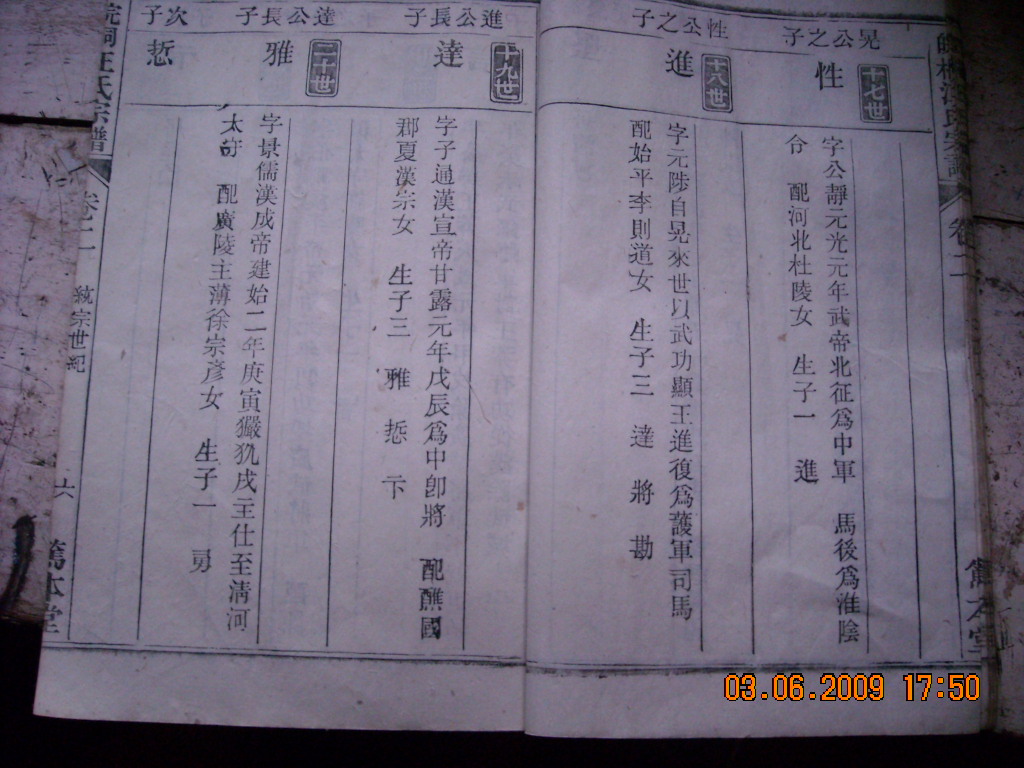 十七世
晃公之子
性
字公靜元光元年武帝北征爲中軍 馬後爲淮陰
令 配河北杜陵女 生子一 進
十八世
性公之子
進
字元陟自晃來世以武功顯王進復爲護軍司馬
配始平李則道女 生子三 達 將 勘
十九世
進公長子
達
字子通漢宣帝甘露元年戊辰爲中郎將 配醮國
郡夏漢宗女 生子三 雅 悊 卞
二十世
達公長子
雅
字景儒漢成帝建始二年庚寅玁狁戌主仕至清河
太守 配廣陵主薄徐宗彥女 生子一 勇
次子
悊
汪氏宗譜
卷二
統宗世紀
六
篤本堂
卷二
03.06.2009 17:50